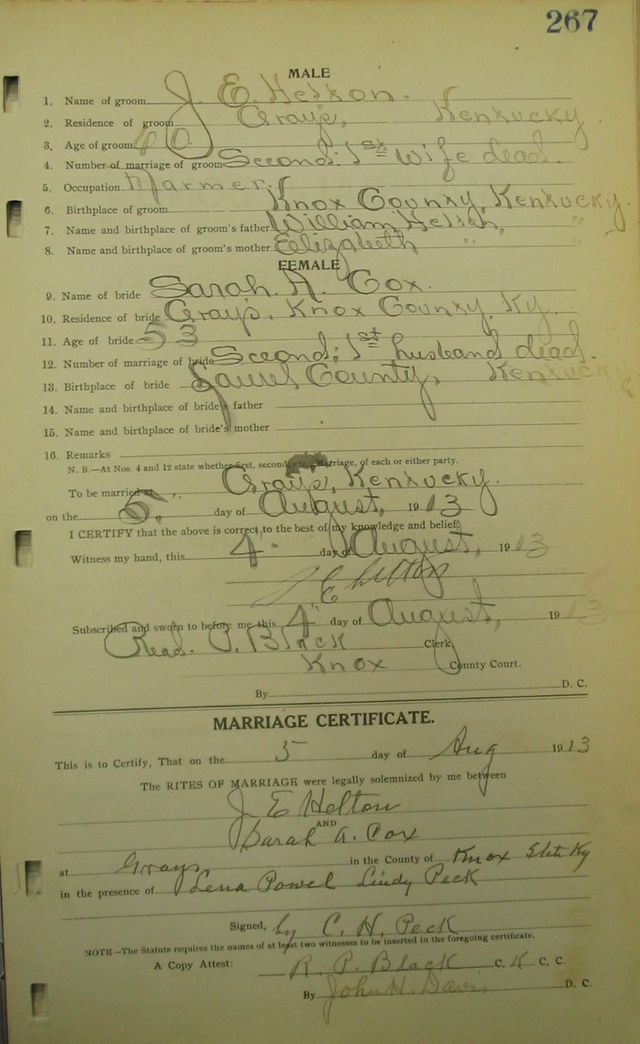 267
MALE
1. Name of groom J. E. Helton.
2. Residence of groom Grays, Kentucky
3. Age of groom 60
4. Number of marriage of groom Second: 1st wife dead.
5. Occupation Farmer.
6. Birthplace of groom Knox County, Kentucky.
7. Name and birthplace of groom's father William Helton, "
8. Name and birthplace of groom's mother Elizabeth " "
FEMALE
9. Name of bride Sarah A. Cox.
10. Residence of bride Grays, Knox County, Ky.
11. Age of bride 53
12. Number of marriage of bride Second; 1st husband dead.
13. Birthplace of bride Laurel County, Kentucky
14. Name and birthplace of bride's father
15. Name and birthplace of bride's mother
16. Remarks
N. B.—At Nos. 4 and 12 state whether first, second, etc., marriage, of each or either party.
To be married at Grays, Kentucky.
on the 5. day of August, 1913
I CERTIFY that the above is correct to the best of my knowledge and belief.
Witness my hand, this 4" day of August, 1913
J E Helton
Subscribed and sworn to before me this 4" day of August, 1913
Read. P. Black Clerk
Knox County Court.
By D. C.
MARRIAGE CERTIFICATE.
This is to Certify, That on the 5 day of Aug 1913
The RITES OF MARRIAGE were legally solemnized by me between
J E Helton
AND
Sarah A. Cox
at Grays in the County of Knox State Ky
in the presence of Lena Powel Lindy Peck
Signed, by C. H. Peck
NOTE—The Statute requires the names of at least two witnesses to be inserted in the foregoing certificate.
A Copy Attest: R. P. Black C. K C. C.
By John H. Davis D. C.